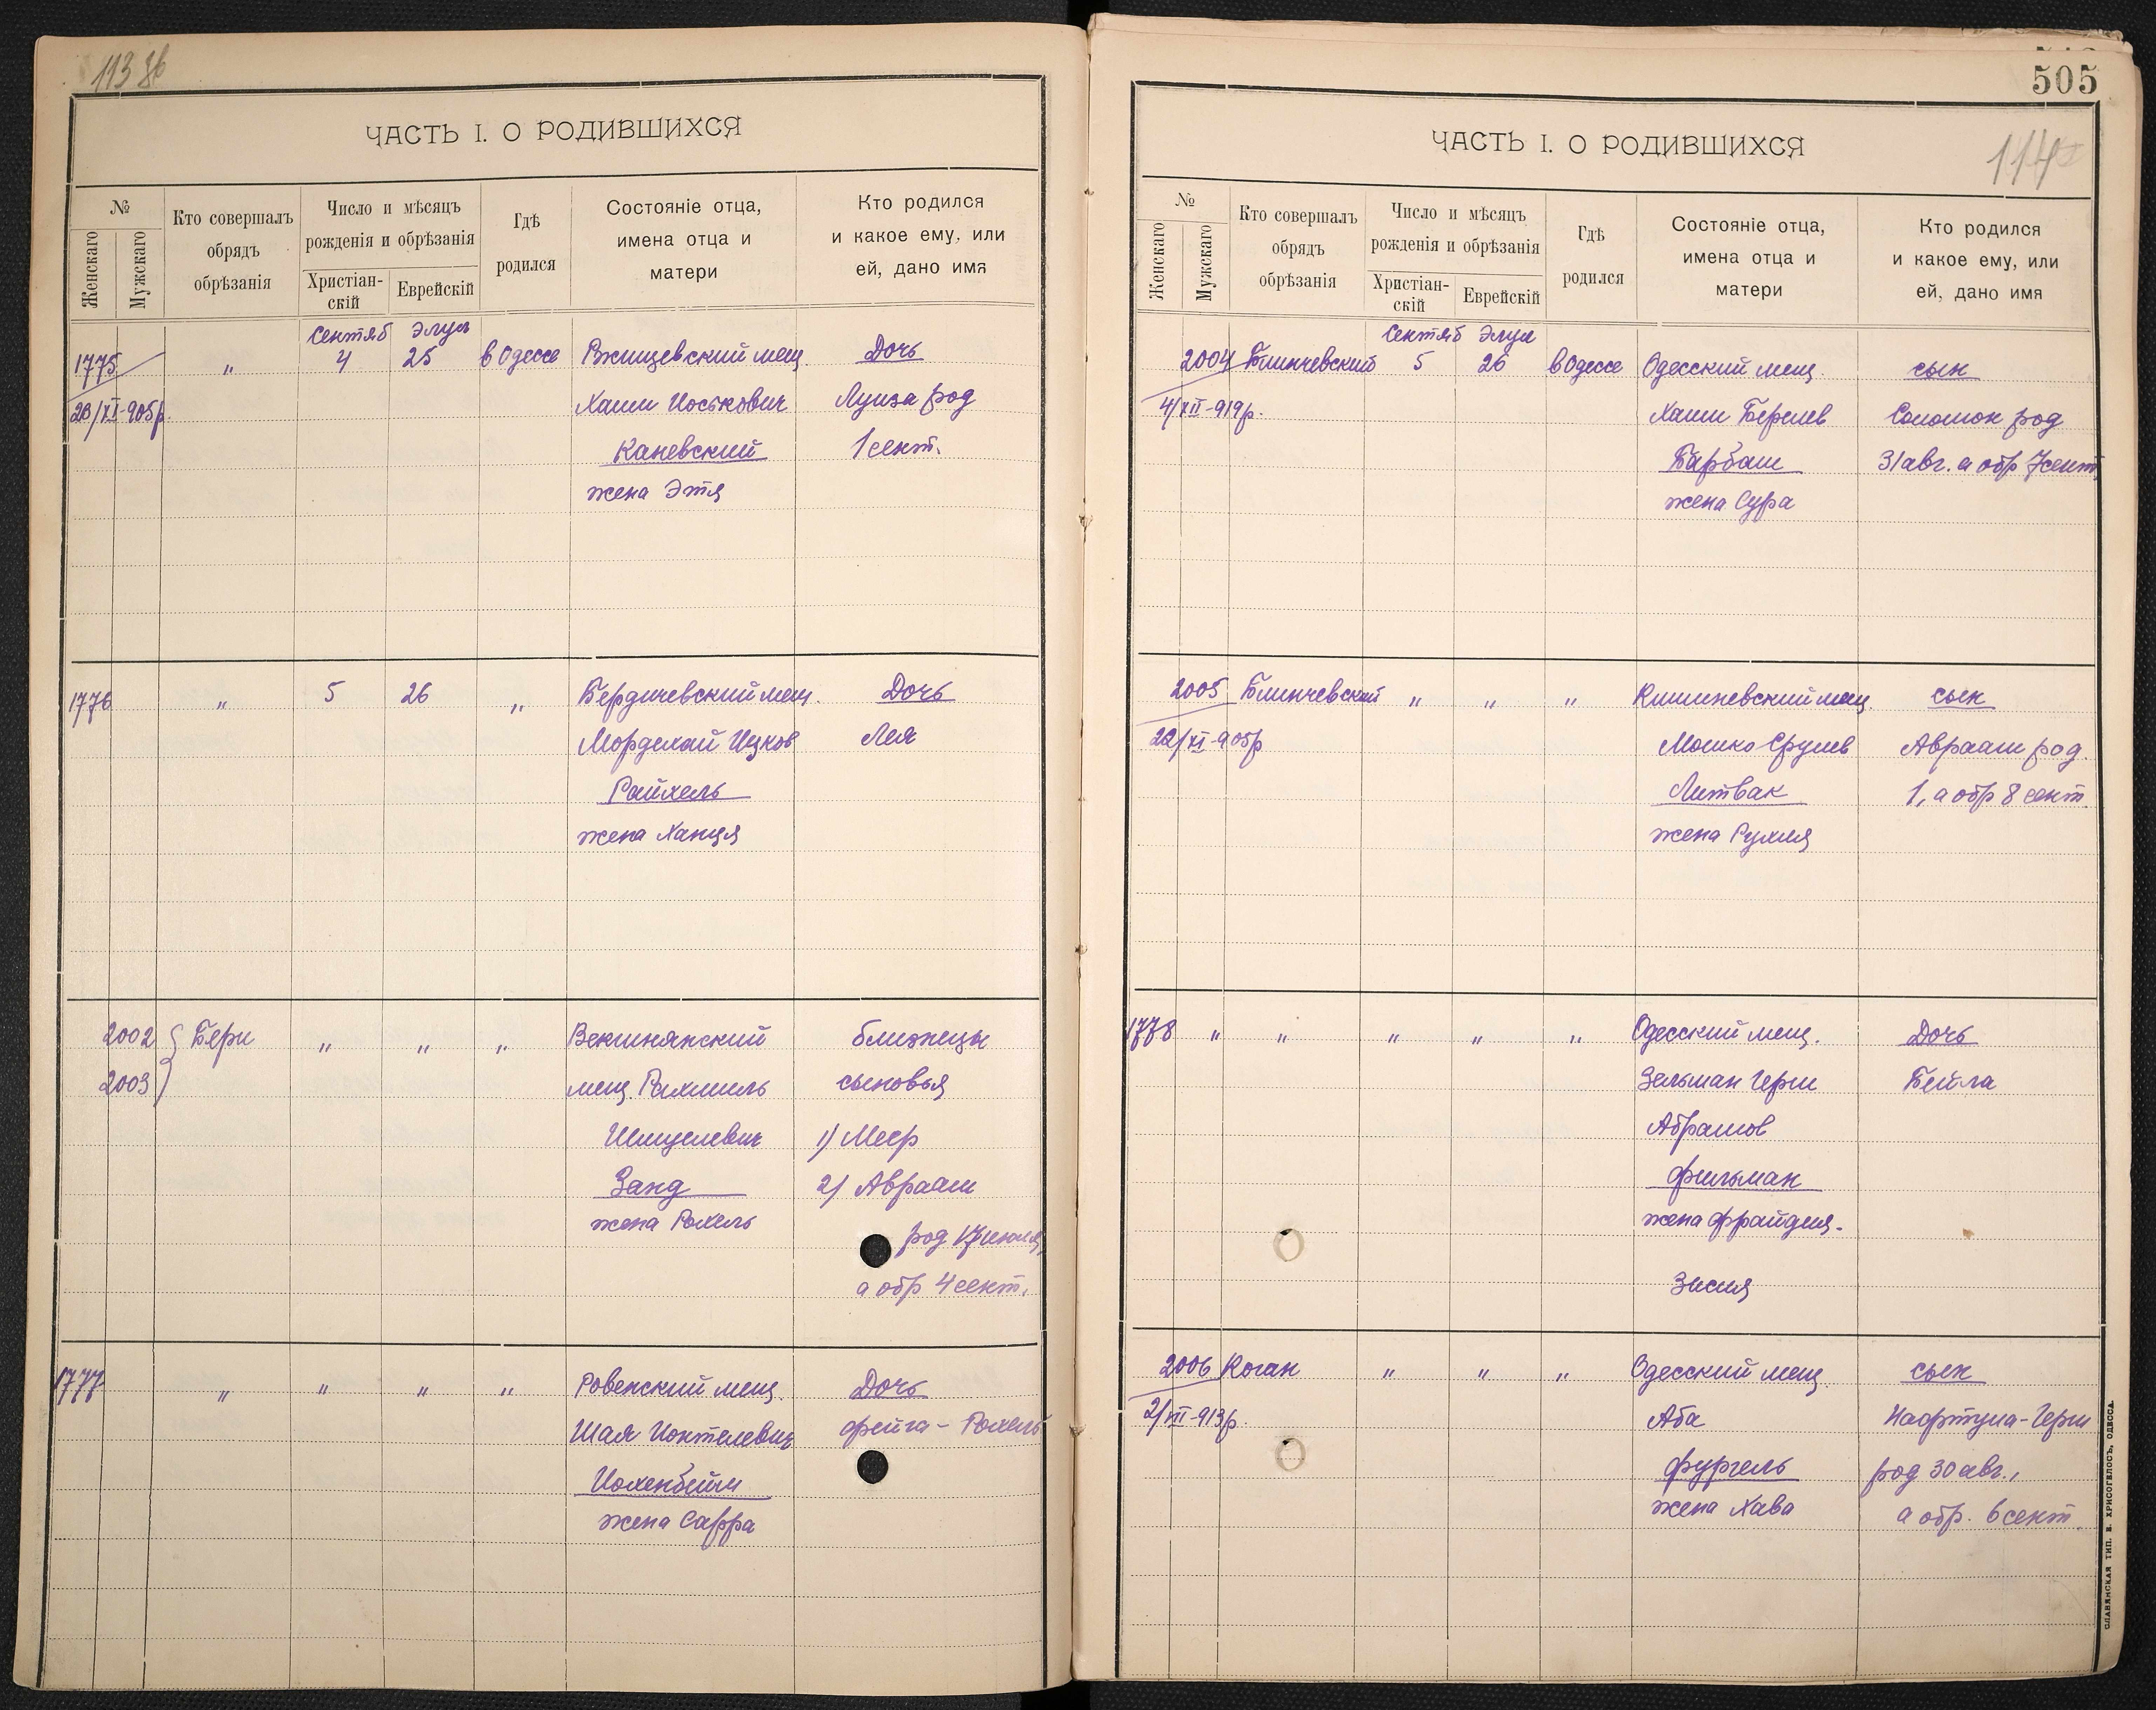 113 об
ЧАСТЬ I. О РОДИВШИХСЯ
№
Женскаго
Мужскаго
Кто совершалъ
обрядъ
обрѣзанія
Число и мѣсяцъ
рожденія и обрѣзанія
Христіан-
скій
Еврейскій
Гдѣ
родился
Состояніе отца,
имена отца и
матери
Кто родился
и какое ему, или
ей, дано имя
Сентяб Элул
1775 " 4 25 в Одессе Ржищевский мещ. Дочь
23/XI-905р. Хаим Иоськович Луиза род
Каневский 1 сент.
жена Этя
1776 " 5 26 " Бердичевский мещ. Дочь
Мордехай Ицков Лея
Райхель
жена Ханця
2002 Бери " " " Векшнянский близнецы
2003 мещ. Рахмиль сыновья
Шмулевич 1) Меер
Занд 2) Авраам
жена Рохель род 17 июля,
а обр 4 сент.
1777 " " " " Ровенский мещ. Дочь
Шая Ионтелевич Фейга-Рохель
Иохенбейм
жена Сарра
505
114
ЧАСТЬ I. О РОДИВШИХСЯ
№
Женскаго
Мужскаго
Кто совершалъ
обрядъ
обрѣзанія
Число и мѣсяцъ
рожденія и обрѣзанія
Христіан-
скій
Еврейскій
Гдѣ
родился
Состояніе отца,
имена отца и
матери
Кто родился
и какое ему, или
ей, дано имя
Сентяб Элул
2004 Блинчевский 5 26 в Одессе Одесский мещ. сын
4/XII-919р. Хаим Берлев Соломон род
Барбаш 31 авг. а обр 7 сент
жена Сура
2005 Блинчевский " " " Кишиневский мещ. сын
22/XI-905р Мошко Срулев Авраам род.
Литвак 1, а обр 8 сент
жена Рухля
1778 " " " " " Одесский мещ. Дочь
Зельман Герш Бейла
Абрамов
Фильман
жена Фрайдля-
Зисля
2006 Коган " " " Одесский мещ. сын
2/VII-913р. Аба Нафтула-Герш
Фургель род 30 авг.,
жена Хава а обр. 6 сент.
СЛАВЯНСКАЯ ТИП. Н. ХРИСОГЕЛОСЪ, ОДЕССА.